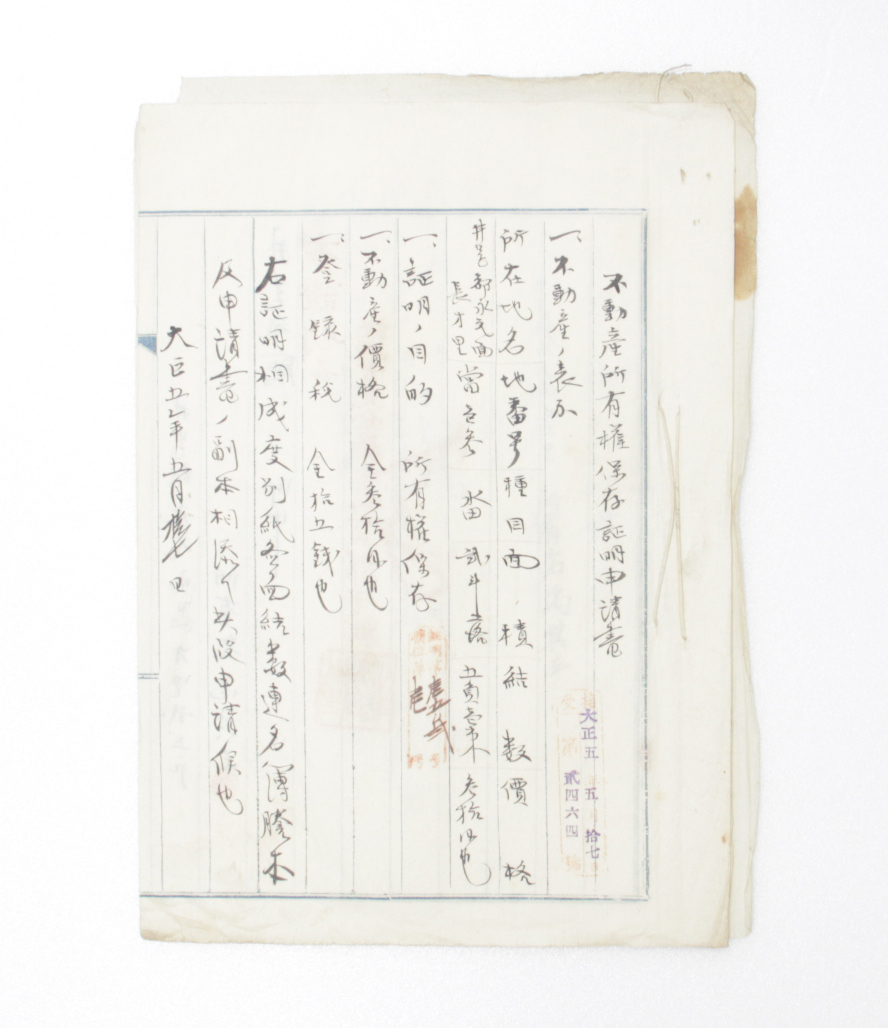 不動産所有權保存証明申請書
一、不動産ノ表示
所在地名 地番号 種目 面積 結数 價格
井邑郡永元面
長才里
當 畓 貳斗落 五負 参拾円也
一、証明ノ目的 所有權保存
一、不動産ノ價格 金参拾円也
一、登録税 金拾五錢也
右証明相成度別紙 面結数連名簿謄本
及申請書ノ副本相添ヘ此段申請候也
大正五年五月拾七日
大正五 五 拾七
貳四六四